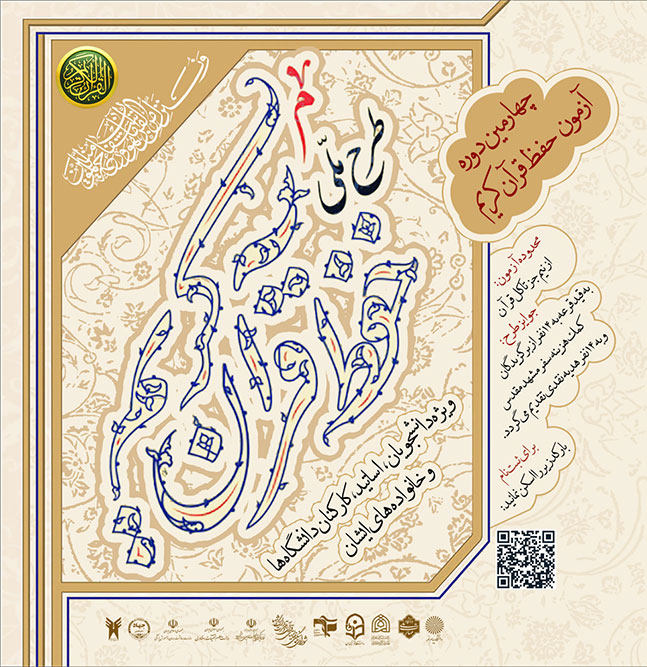 چهارمین دوره
آزمون حفظ قرآن کریم
طرح ملّی
حفظ قرآن کریم
ویژه دانشجویان، اساتید، کارکنان دانشگاه‌ها
و خانواده‌های ایشان
محدوده آزمون:
از نیم جزء تا کل قرآن
جوایز طرح:
به قید قرعه به ۱۴ نفر از برگزیدگان
کمک هزینه سفر مشهد مقدس
و به ۱۴ نفر هدیه نقدی تقدیم می گردد.
برای ثبت نام
بارکد زیر را اسکن نمائید: